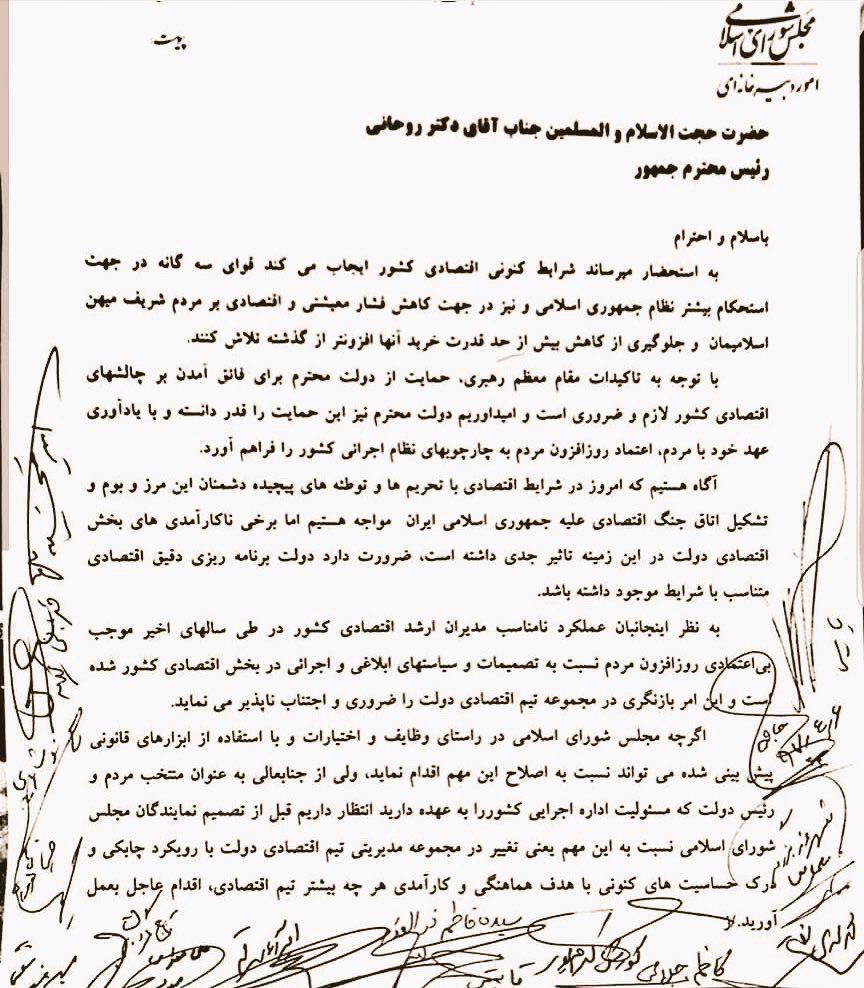 مجلس شورای اسلامی
امور دبیرخانه‌ای
پیوست
حضرت حجت الاسلام و المسلمین جناب آقای دکتر روحانی
رئیس محترم جمهور
باسلام و احترام
به استحضار میرساند شرایط کنونی اقتصادی کشور ایجاب می کند قوای سه گانه در جهت
استحکام بیشتر نظام جمهوری اسلامی و نیز در جهت کاهش فشار معیشتی و اقتصادی بر مردم شریف میهن
اسلامیمان و جلوگیری از کاهش بیش از حد قدرت خرید آنها افزونتر از گذشته تلاش کنند.
با توجه به تاکیدات مقام معظم رهبری، حمایت از دولت محترم برای فائق آمدن بر چالشهای
اقتصادی کشور لازم و ضروری است و امیداوریم دولت محترم نیز این حمایت را قدر دانسته و با یادآوری
عهد خود با مردم، اعتماد روزافزون مردم به چارچوبهای نظام اجرائی کشور را فراهم آورد.
آگاه هستیم که امروز در شرایط اقتصادی با تحریم ها و توطئه های پیچیده دشمنان این مرز و بوم و
تشکیل اتاق جنگ اقتصادی علیه جمهوری اسلامی ایران مواجه هستیم اما برخی ناکارآمدی های بخش
اقتصادی دولت در این زمینه تاثیر جدی داشته است، ضرورت دارد دولت برنامه ریزی دقیق اقتصادی
متناسب با شرایط موجود داشته باشد.
به نظر اینجانبان عملکرد نامناسب مدیران ارشد اقتصادی کشور در طی سالهای اخیر موجب
بی‌اعتمادی روزافزون مردم نسبت به تصمیمات و سیاستهای ابلاغی و اجرائی در بخش اقتصادی کشور شده
است و این امر بازنگری در مجموعه تیم اقتصادی دولت را ضروری و اجتناب ناپذیر می نماید.
اگرچه مجلس شورای اسلامی در راستای وظایف و اختیارات و با استفاده از ابزارهای قانونی
پیش بینی شده می تواند نسبت به اصلاح این مهم اقدام نماید، ولی از جنابعالی به عنوان منتخب مردم و
رئیس دولت که مسئولیت اداره اجرایی کشوررا به عهده دارید انتظار داریم قبل از تصمیم نمایندگان مجلس
شورای اسلامی نسبت به این مهم یعنی تغییر در مجموعه مدیریتی تیم اقتصادی دولت با رویکرد چابکی و
درک حساسیت های کنونی با هدف هماهنگی و کارآمدی هر چه بیشتر تیم اقتصادی، اقدام عاجل بعمل
آورید.
سیده فاطمه
کاظم جلالی